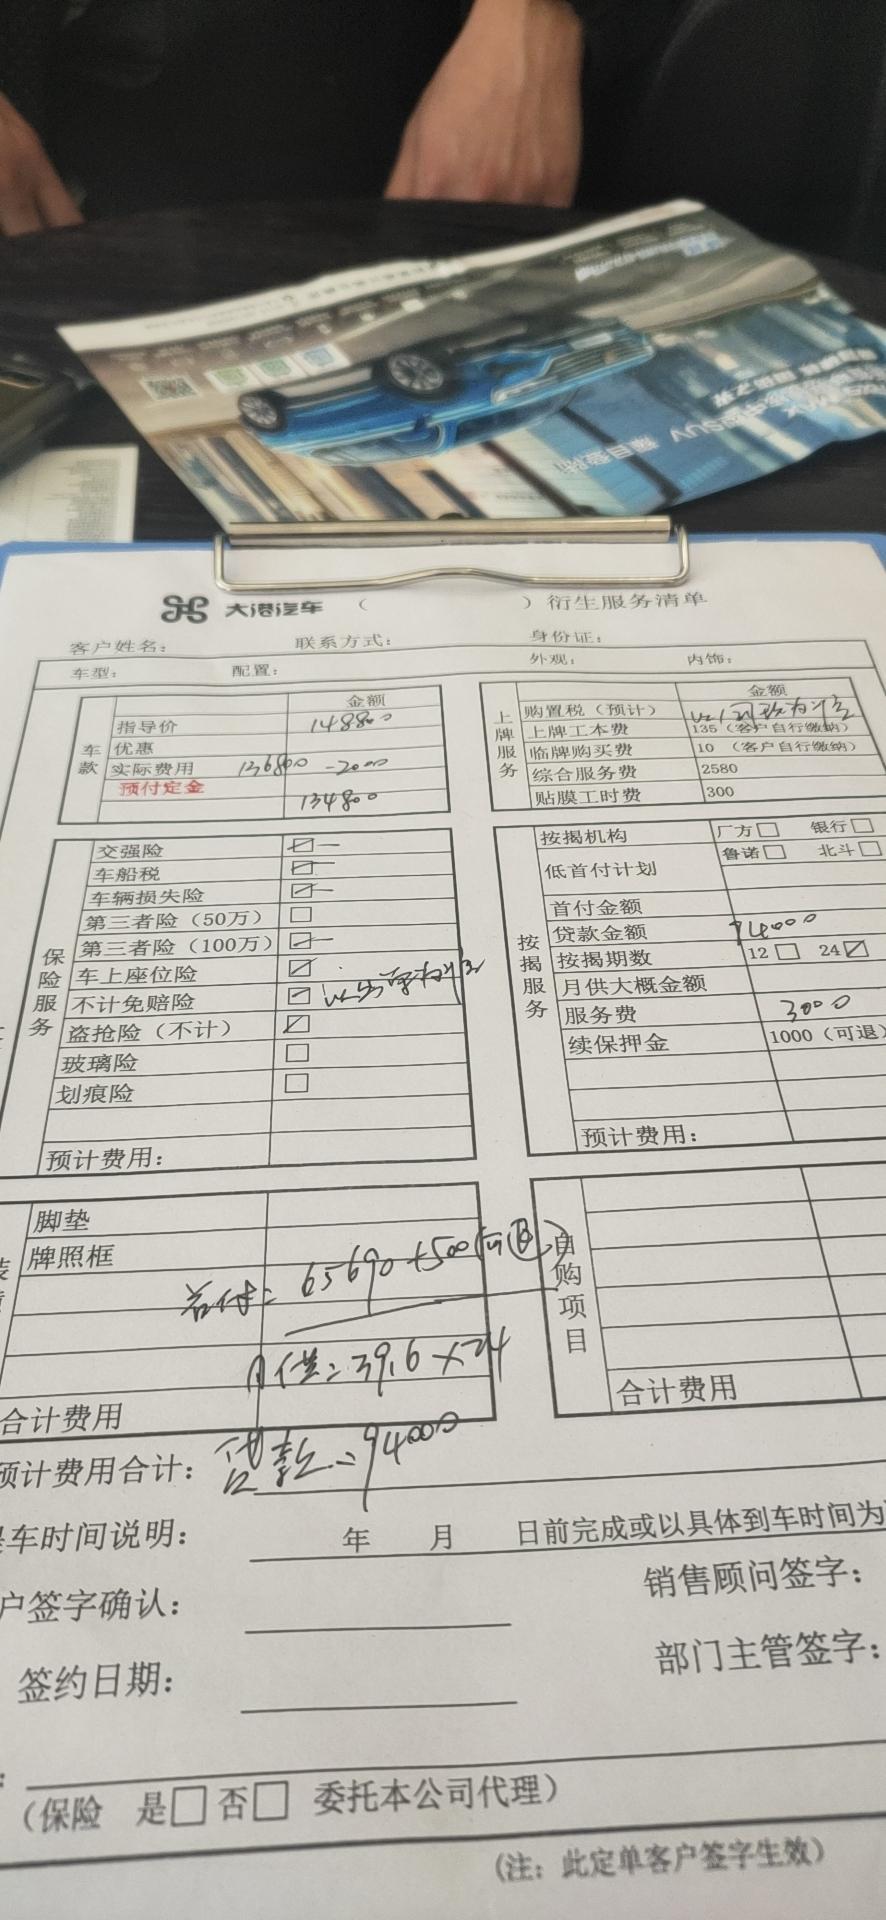 大港汽车 （ ）衍生服务清单
客户姓名： 联系方式： 身份证：
车型： 配置： 外观： 内饰：
车款
金额
指导价 148800
优惠
实际费用 136800 -2000
预付定金
134800
上牌服务
金额
购置税（预计）
上牌工本费 135（客户自行缴纳）
临牌购买费 10 （客户自行缴纳）
综合服务费 2580
贴膜工时费 300
保险服务
交强险
车船税
车辆损失险
第三者险（50万）
第三者险（100万）
车上座位险
不计免赔险
盗抢险（不计）
玻璃险
划痕险
预计费用：
按揭服务
按揭机构 厂方 银行
低首付计划 鲁诺 北斗
首付金额
贷款金额 94000
按揭期数 12 24
月供大概金额
服务费 3000
续保押金 1000（可退）
预计费用：
脚垫
牌照框
首付= 65690+500
月供=3916×24
合计费用
自购项目
合计费用
预计费用合计： 贷款=94000
车时间说明： 年 月 日前完成或以具体到车时间为
户签字确认： 销售顾问签字：
签约日期： 部门主管签字：
（保险 是 否 委托本公司代理）
（注：此定单客户签字生效）